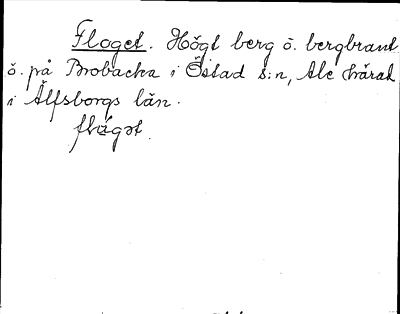 Floget. Högt berg o. bergbrant
ö. på Brobacka i Östad s:n, Ale härad
i Älfsborgs län.